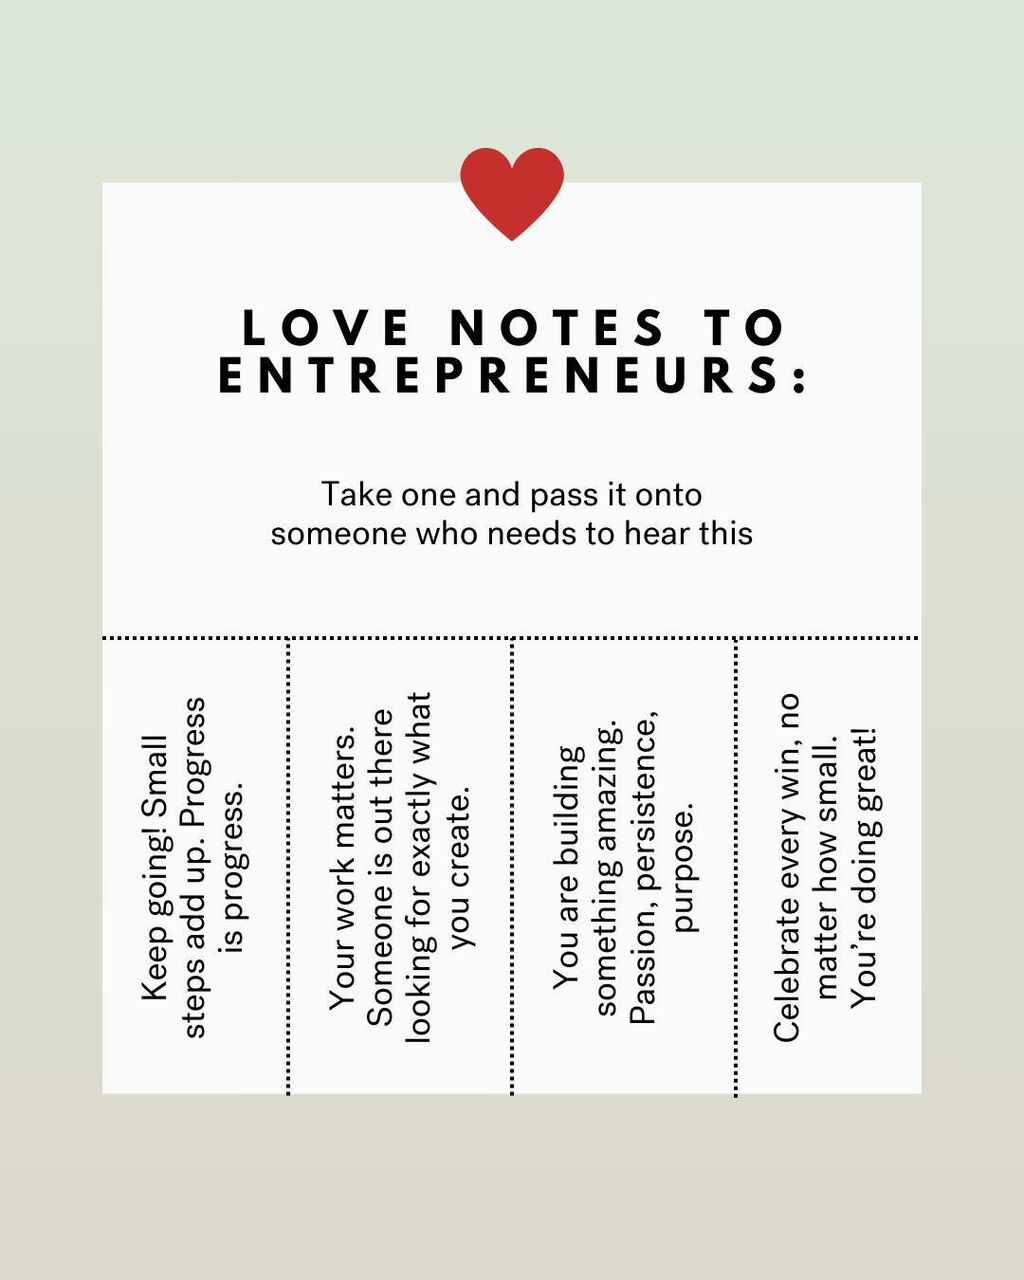 LOVE NOTES TO
ENTREPRENEURS:
Take one and pass it onto
someone who needs to hear this
Keep going! Small
steps add up. Progress
is progress.
Your work matters.
Someone is out there
looking for exactly what
you create.
You are building
something amazing.
Passion, persistence,
purpose.
Celebrate every win, no
matter how small.
You’re doing great!